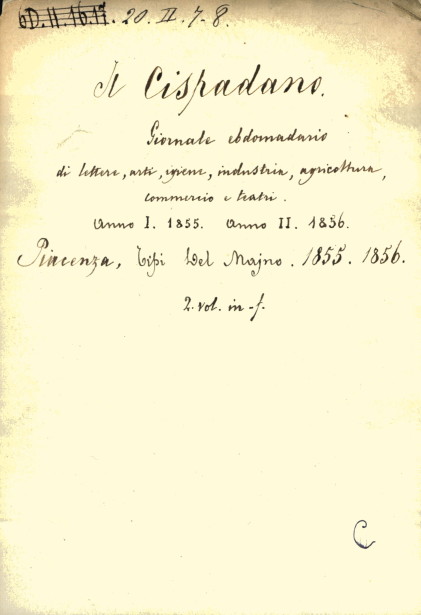 6D. II. 16. 17. 20. II. 7-8.
Il Cispadano.
Giornale ebdomadario
di lettere, arti, igiene, industria, agricoltura,
commercio e teatri.
Anno I. 1855. Anno II. 1856.
Piacenza, Tipi Del Majno. 1855. 1856.
2. vol. in-f.
C